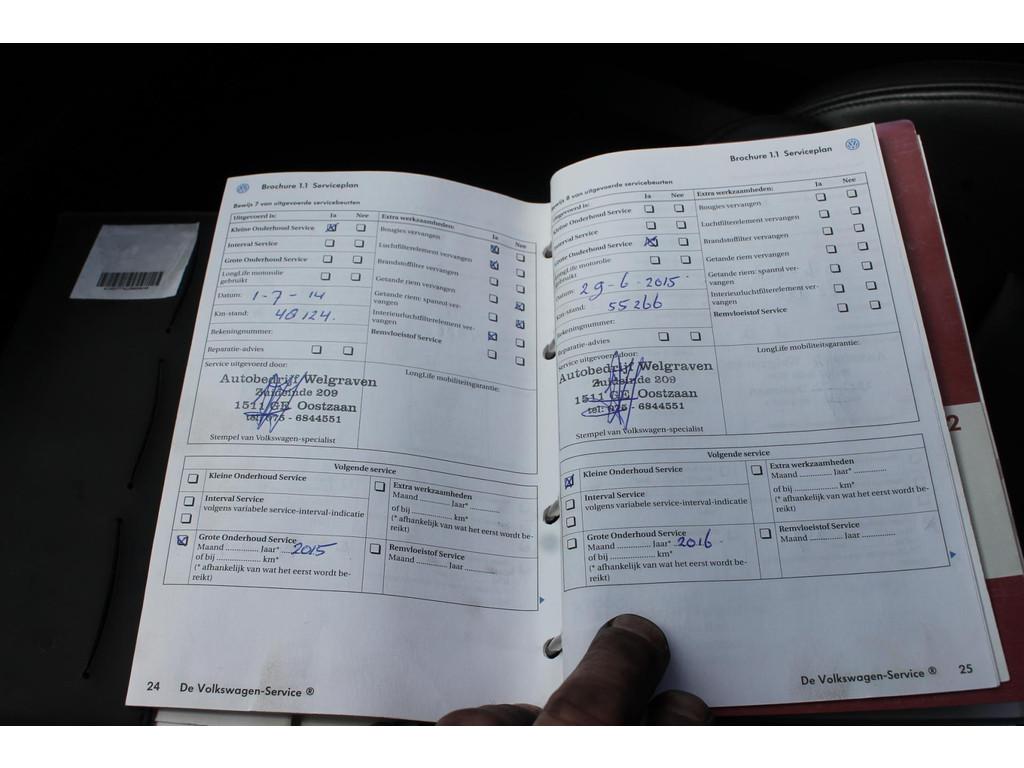 Brochure 1.1 Serviceplan
Bewijs 7 van uitgevoerde servicebeurten
Uitgevoerd is: Ja Nee
Kleine Onderhoud Service
Interval Service
Grote Onderhoud Service
LongLife motorolie
gebruikt
Datum: 1-7-14
Km-stand: 48124.
Rekeningnummer:
Reparatie-advies
Extra werkzaamheden: Ja Nee
Bougies vervangen
Luchtfilterelement vervangen
Brandstoffilter vervangen
Getande riem vervangen
Getande riem: spanrol ver-
vangen
Interieurluchtfilterelement ver-
vangen
Remvloeistof Service
Service uitgevoerd door:
Autobedrijf Welgraven
Zuideinde 209
1511 GE Oostzaan
tel: 075 - 6844551
Stempel van Volkswagen-specialist
LongLife mobiliteitsgarantie:
Volgende service
Kleine Onderhoud Service
Interval Service
volgens variabele service-interval-indicatie
Grote Onderhoud Service
Maand ............ Jaar* 2015
of bij ................ km*
(* afhankelijk van wat het eerst wordt be-
reikt)
Extra werkzaamheden
Maand ............ Jaar* ............
of bij ................ km*
(* afhankelijk van wat het eerst wordt be-
reikt)
Remvloeistof Service
Maand ............ Jaar ............
24 De Volkswagen-Service ®
Brochure 1.1 Serviceplan
Bewijs 8 van uitgevoerde servicebeurten
Uitgevoerd is: Ja Nee
Kleine Onderhoud Service
Interval Service
Grote Onderhoud Service
LongLife motorolie
gebruikt
Datum: 29-6-2015
Km-stand: 55266
Rekeningnummer:
Reparatie-advies
Extra werkzaamheden: Ja Nee
Bougies vervangen
Luchtfilterelement vervangen
Brandstoffilter vervangen
Getande riem vervangen
Getande riem: spanrol ver-
vangen
Interieurluchtfilterelement ver-
vangen
Remvloeistof Service
Service uitgevoerd door:
Autobedrijf Welgraven
Zuideinde 209
1511 GE Oostzaan
tel: 075 - 6844551
Stempel van Volkswagen-specialist
LongLife mobiliteitsgarantie:
Volgende service
Kleine Onderhoud Service
Interval Service
volgens variabele service-interval-indicatie
Grote Onderhoud Service
Maand ............ Jaar* 2016
of bij ................ km*
(* afhankelijk van wat het eerst wordt be-
reikt)
Extra werkzaamheden
Maand ............ Jaar* ............
of bij ................ km*
(* afhankelijk van wat het eerst wordt be-
reikt)
Remvloeistof Service
Maand ............ Jaar ............
De Volkswagen-Service ® 25
2